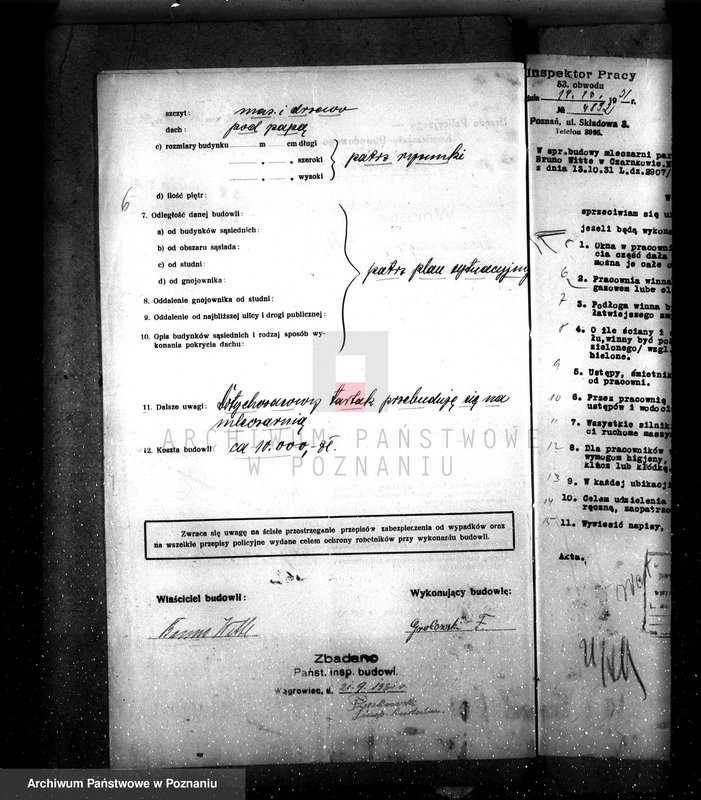 szczyt: mas. i drzewo
dach: pod papą
c) rozmiary budynku m cm długi
" " szeroki
" " wysoki
patrz rysunki
d) ilość pięter:
6
7. Odległość danej budowli:
a) od budynków sąsiednich:
b) od obszaru sąsiada:
c) od studni:
d) od gnojownika:
patrz plan sytuacyjny
8. Oddalenie gnojownika od studni:
9. Oddalenie od najbliższej ulicy i drogi publicznej:
10. Opis budynków sąsiednich i rodzaj sposób wy-
konania pokrycia dachu:
11. Dalsze uwagi: Dotychczasowy tartak przebuduję się na
mleczarnią
12. Koszta budowli: ca 10.000,- zł.
Zwraca się uwagę na ścisłe przestrzeganie przepisów zabezpieczenia od wypadków oraz
na wszelkie przepisy policyjne wydane celem ochrony robotników przy wykonaniu budowli.
Właściciel budowli:
Bruno Witte
Wykonujący budowlę:
Grabowski F
Zbadano
Państ. insp. budowl.
Wągrowiec, d. 21.9.
Inspektor Pracy
53. obwodu
dnia 19. 12. 1931 r.
№ 4892
Poznań, ul. Składowa 3.
Telefon 3985.
W spr.budowy mleczarni par
Bruno Witte w Czarnkowie.N
z dnia 13.10.31 L.dz.2907/
sprzeciwiam się u
jeżeli będą wykon
1. Okna w pracowni
cia część dała
można je całe
6 2. Pracownia winna
gazowem lube el
7 3. Podłoga winna b
łatwiejszego zm
8 4. O ile ściany i
łu,winny być po
zielonego/ wzgl.
bielone.
9 5. Ustępy, śmietnik
od pracowni.
10 6. Przez pracownię
ustępów i wodoci
11 7. Wszystkie silniki
ci ruchome maszy
12 8. Dla pracowników
wymogom higjeny,
klucz lub kłódkę
13 9. W każdej ubikacji
14 10. Celem udzielenia
ręczną, zaopatrzo
15 11. Wywiesić napisy,
Akta.
ARCHIWUM PAŃSTWOWE
W POZNANIU
Archiwum Państwowe w Poznaniu